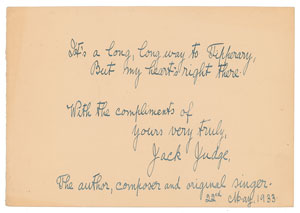 It's a long, long way to Tipperary,
But my heart's right there.
With the compliments of
Yours very truly,
Jack Judge.
The author, composer and original singer.
22nd May, 1933